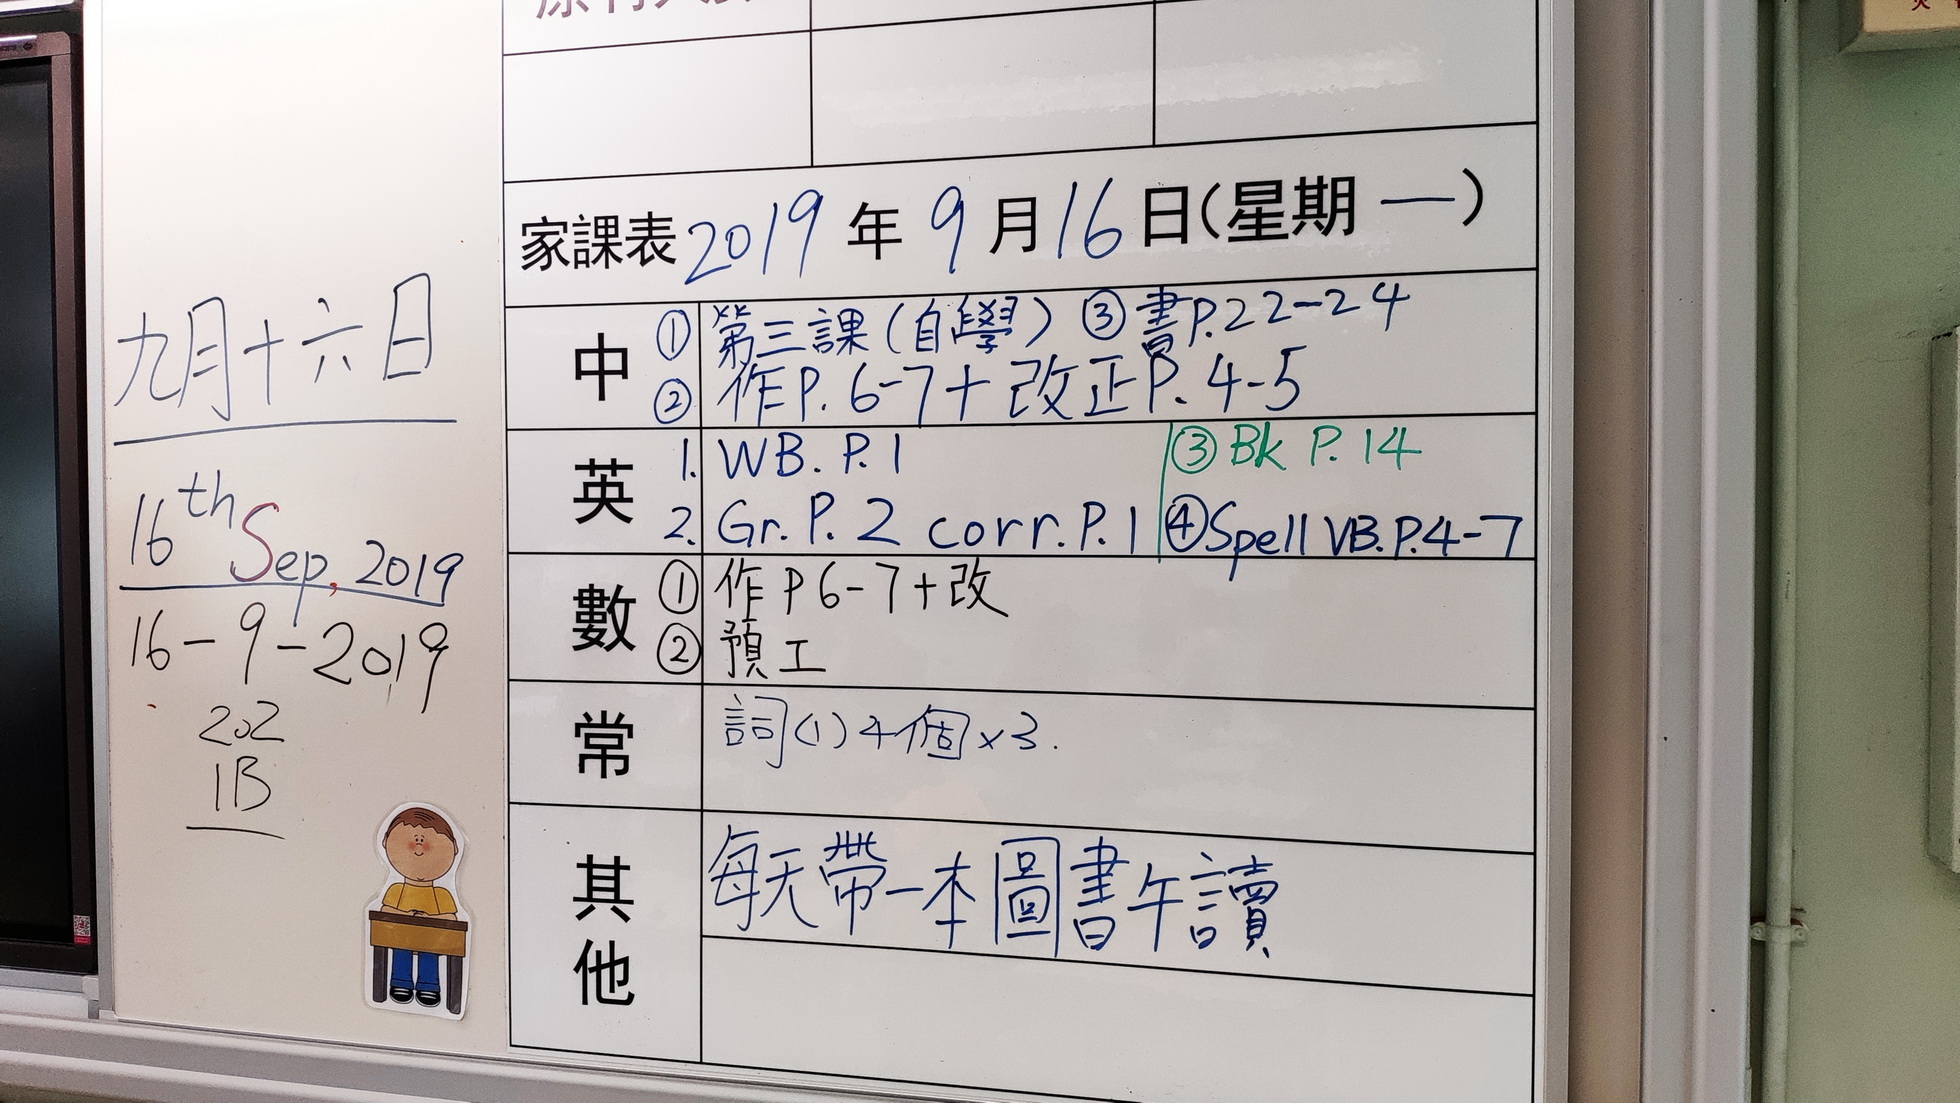 九月十六日
16th Sep, 2019
16-9-2019
202
1B
家課表 2019 年 9 月 16 日(星期 一)
中 ① 第三課(自學) ③ 書P.22-24
② 作P. 6-7+改正P. 4-5
英 1. WB. P. 1 ③ Bk P. 14
2. Gr. P. 2 corr. P. 1 ④ Spell VB. P. 4-7
數 ① 作 P 6-7+改
② 預工
常 詞(1) 4個x3.
其他 每天帶一本圖書午讀